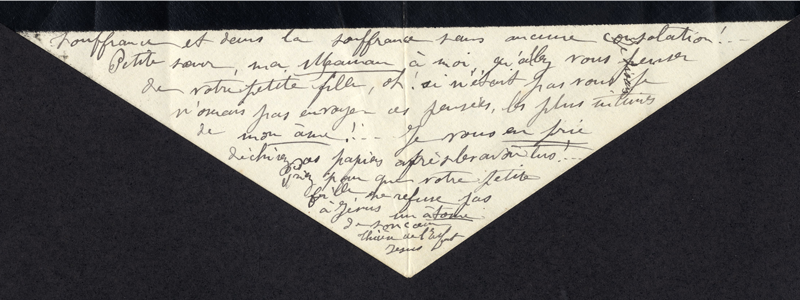 souffrance et dans la souffrance sans aucune consolation!..
Petite sœur, ma Maman à moi, qu'allez vous penser
de votre petite fille, oh! si n'était pas vous je
n'omais pas envoyer ces pensées, les plus intimes
de mon âme!... Je vous en prie
déchirez ces papiers après les avoir lus!...
Priez pour que votre petite
fille ne refuse pas
à Jésus un atome
de son cœur
Thérèse de l'Enft
Jésus